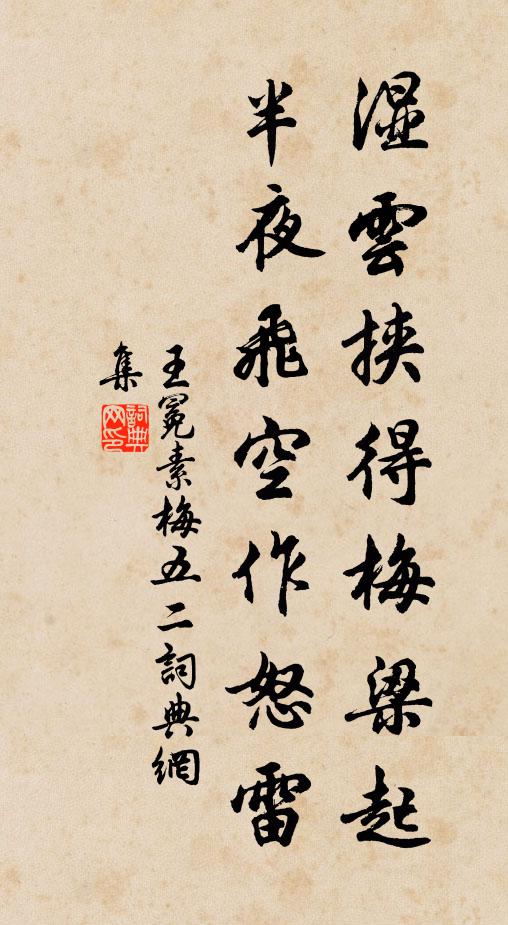 湿雲挾得梅梁起
半夜飛空作怒雷
王冕素梅五二詞典網
集
詞典网印